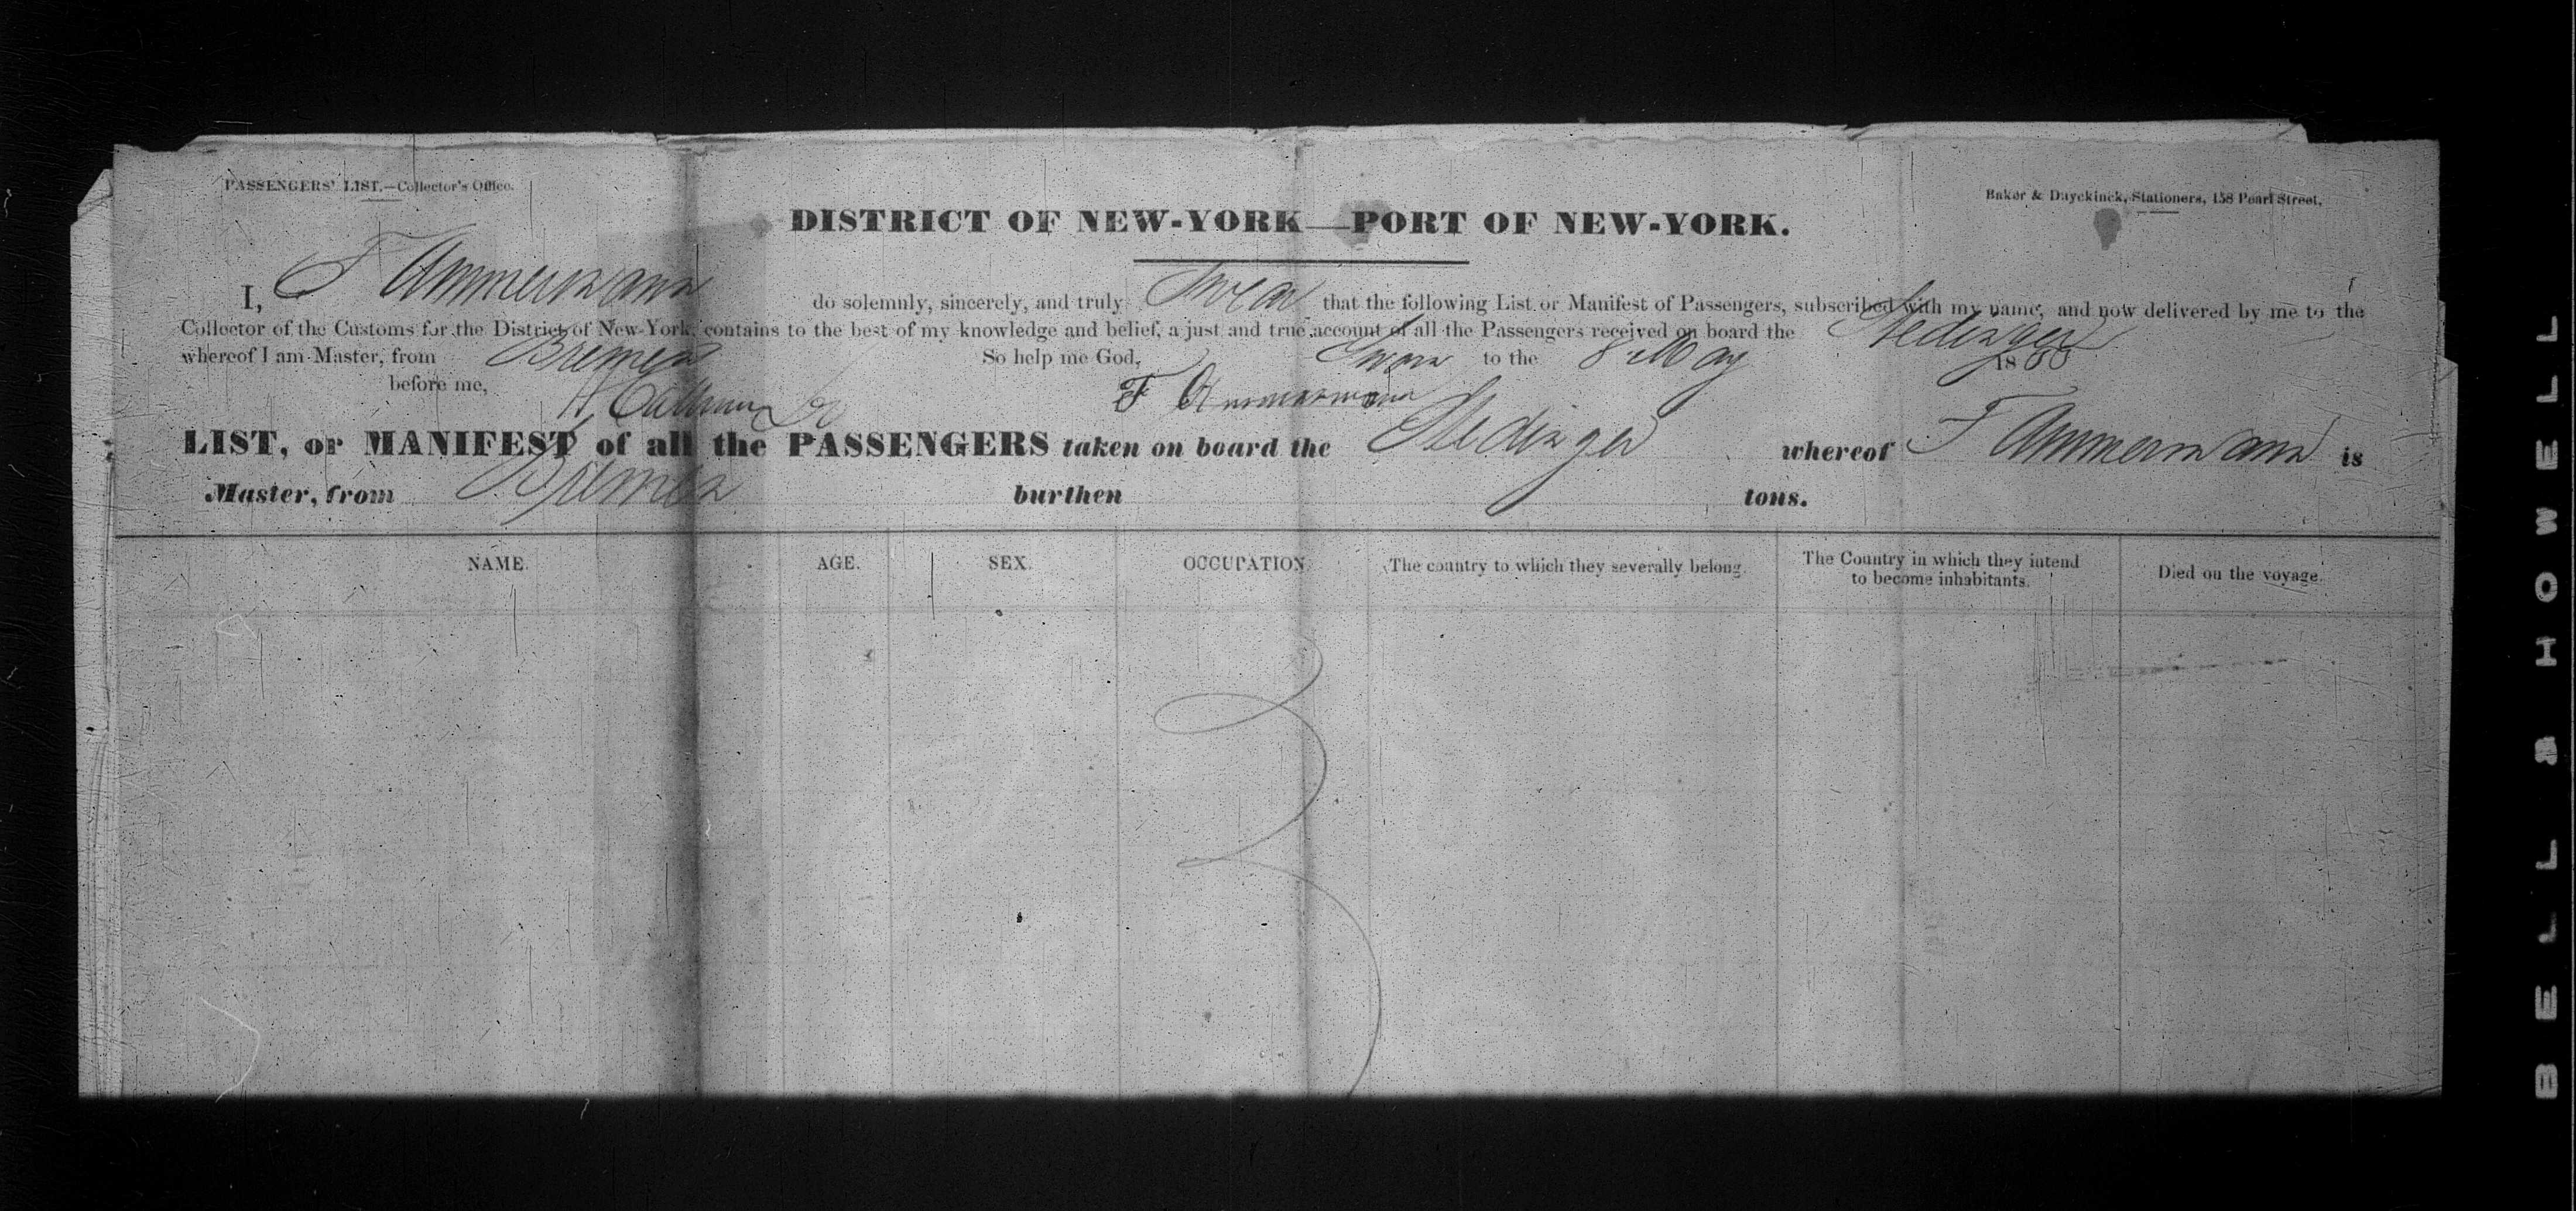 PASSENGERS' LIST.—Collector's Office.
Baker & Duyckinck, Stationers, 158 Pearl Street.
DISTRICT OF NEW-YORK—PORT OF NEW-YORK.
I, F Ammermann do solemnly, sincerely, and truly Swear that the following List or Manifest of Passengers, subscribed with my name, and now delivered by me to the
Collector of the Customs for the District of New-York, contains to the best of my knowledge and belief, a just and true account of all the Passengers received on board the Stedinger
whereof I am Master, from Bremen So help me God, Sworn to the 8 May 18
before me, F Ammermann
LIST, or MANIFEST of all the PASSENGERS taken on board the Stedinger whereof F Ammermann is
Master, from Bremen burthen tons.
NAME. AGE. SEX. OCCUPATION. The country to which they severally belong. The Country in which they intend to become inhabitants. Died on the voyage.
3
BELL & HOWELL